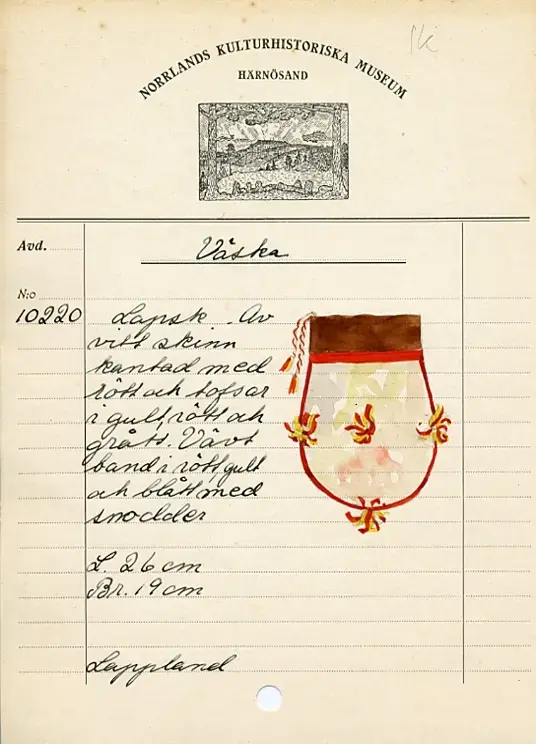 NORRLANDS KULTURHISTORISKA MUSEUM
HÄRNÖSAND
Avd.
Väska
N:o
10220
Lapsk. Av
vitt skinn
kantad med
rött och tofsar
i gult, rött och
grått. Vävt
band i rött, gult
och blått med
snodder
L. 26 cm
Br. 19 cm
Lappland